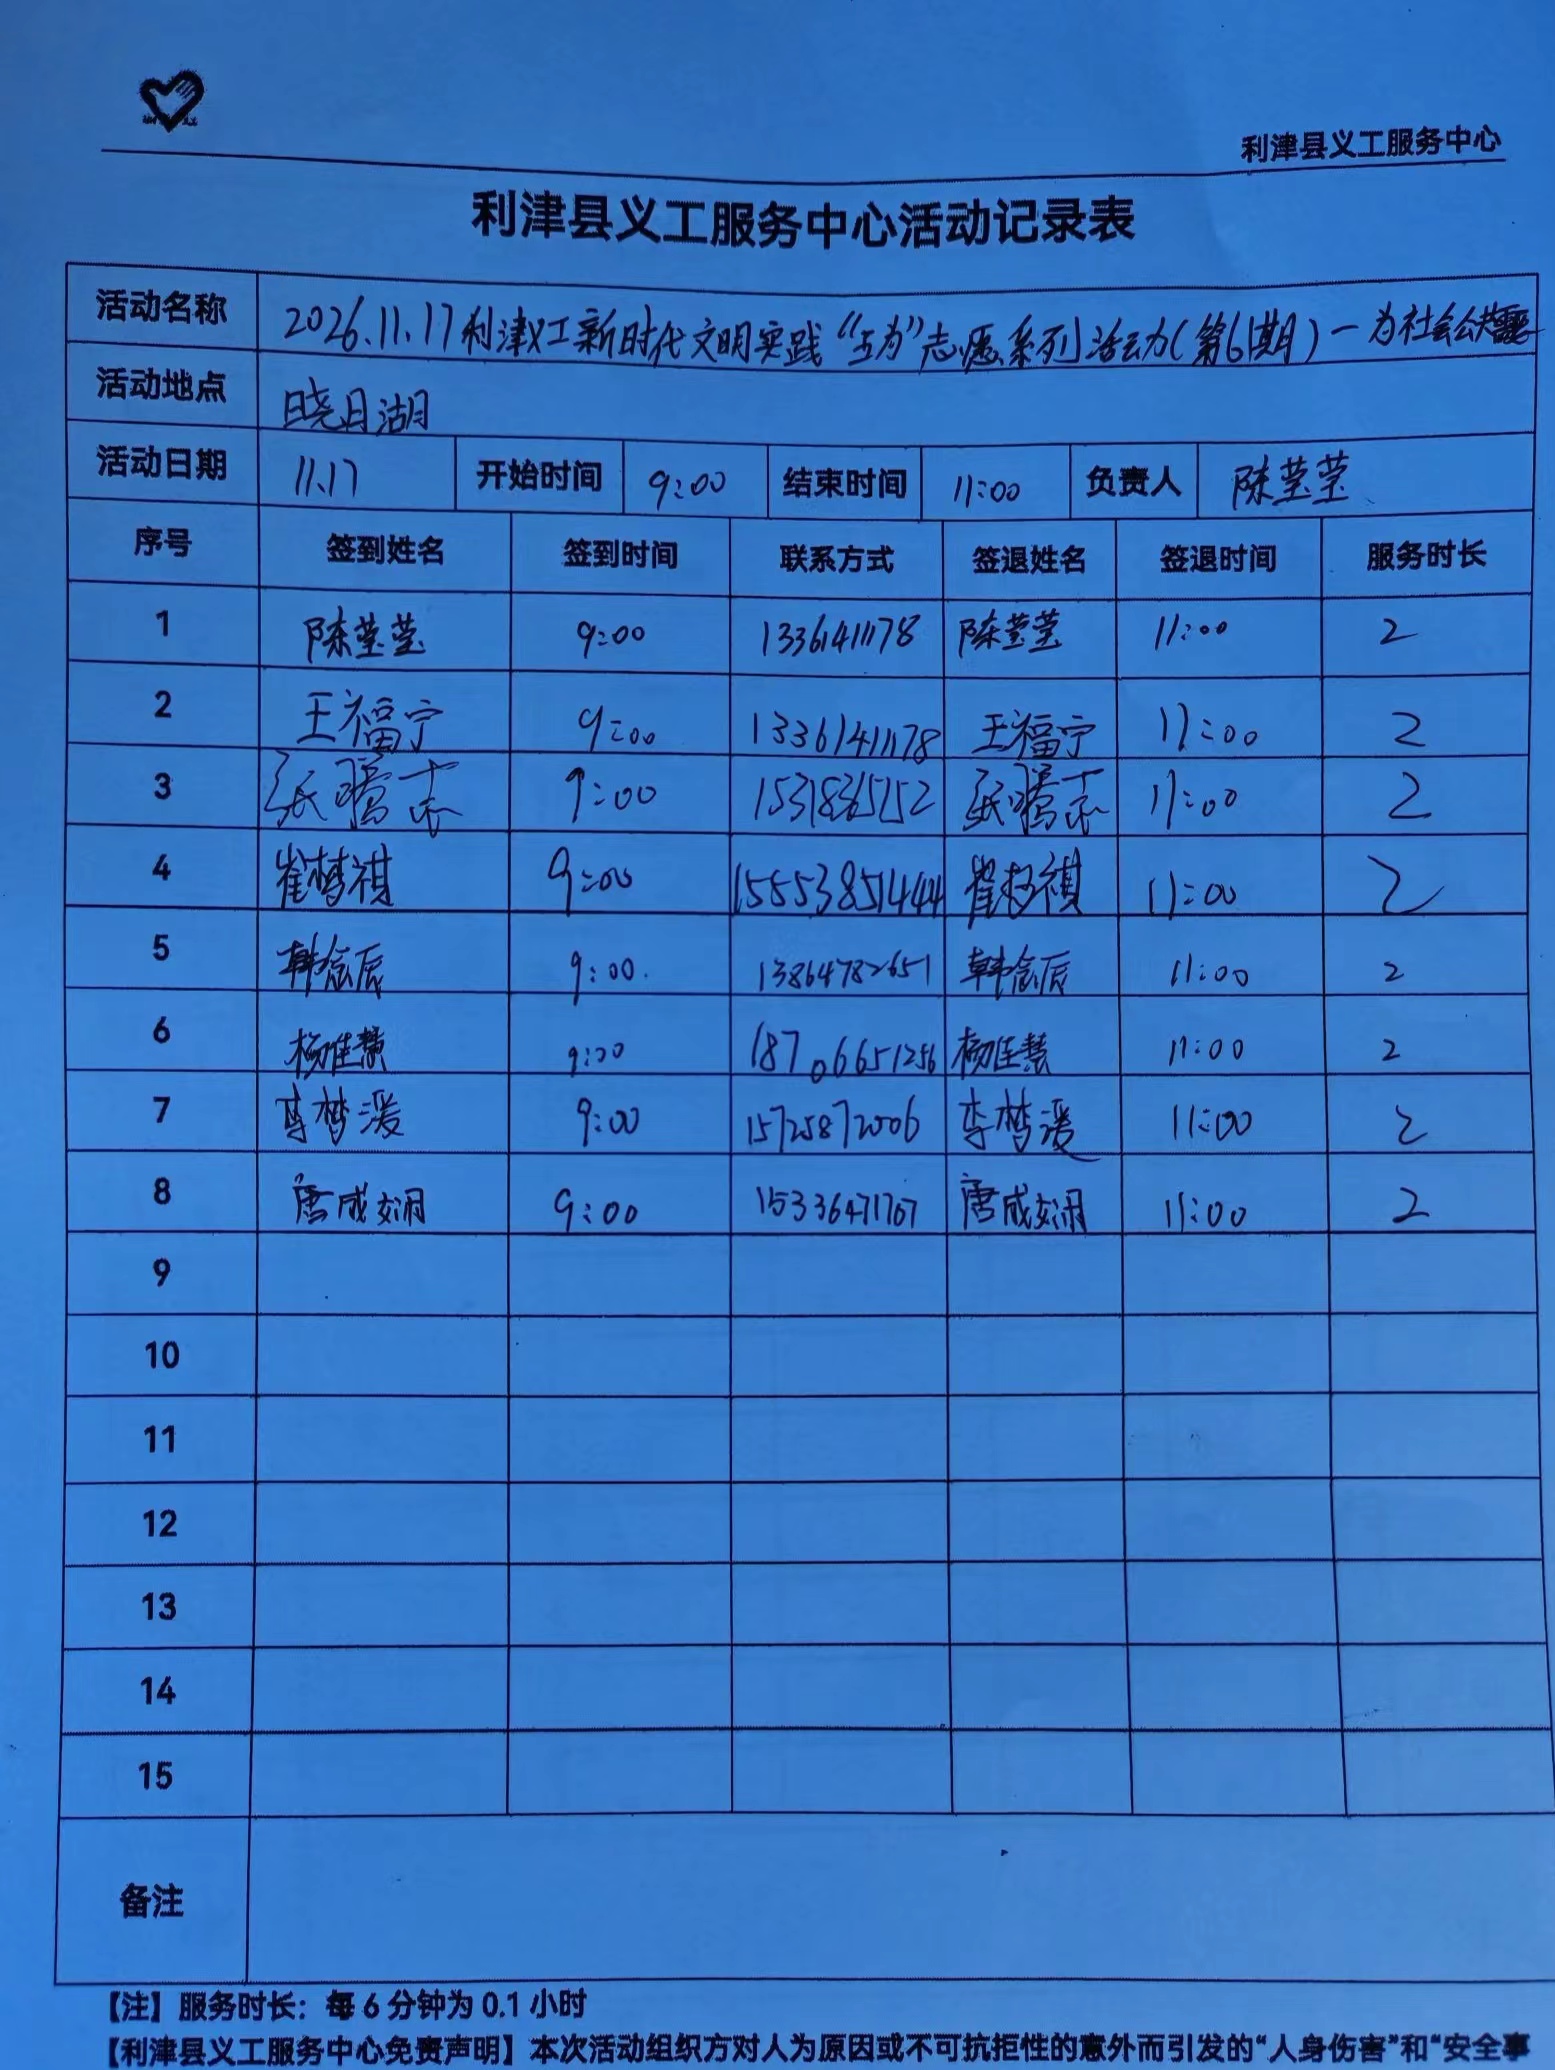 利津县义工服务中心
利津县义工服务中心活动记录表
活动名称 2026.11.17利津义工新时代文明实践“五为”志愿系列活动(第61期)一为社会公共
活动地点 晓月湖
活动日期 11.17 开始时间 9:00 结束时间 11:00 负责人 陈莹莹
序号 签到姓名 签到时间 联系方式 签退姓名 签退时间 服务时长
1 陈莹莹 9:00 13361411178 陈莹莹 11:00 2
2 王福宁 9:00 13361411178 王福宁 11:00 2
3 9:00 15318365152 11:00 2
4 崔梦祺 9:00 15553851444 崔梦祺 11:00 2
5 韩念辰 9:00 13864782651 韩念辰 11:00 2
6 杨佳慧 9:00 18706651256 杨佳慧 11:00 2
7 李梦湲 9:00 15725872006 李梦湲 11:00 2
8 唐成娴 9:00 15336471767 唐成娴 11:00 2
9
10
11
12
13
14
15
备注
【注】服务时长：每6分钟为0.1小时
【利津县义工服务中心免责声明】本次活动组织方对人为原因或不可抗拒性的意外而引发的“人身伤害”和“安全事